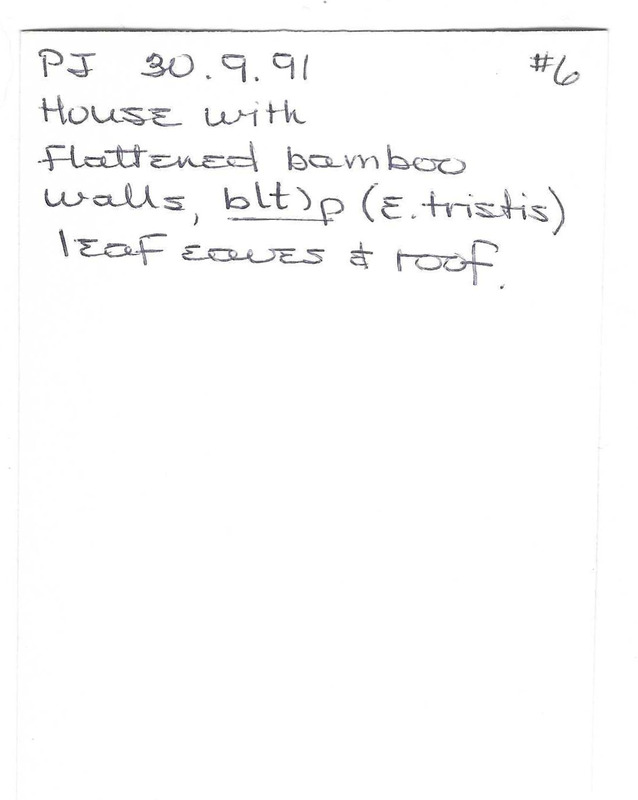 PJ 30.9.91 #6
House with
flattened bamboo
walls, blt)p (E. tristis)
leaf eaves & roof.